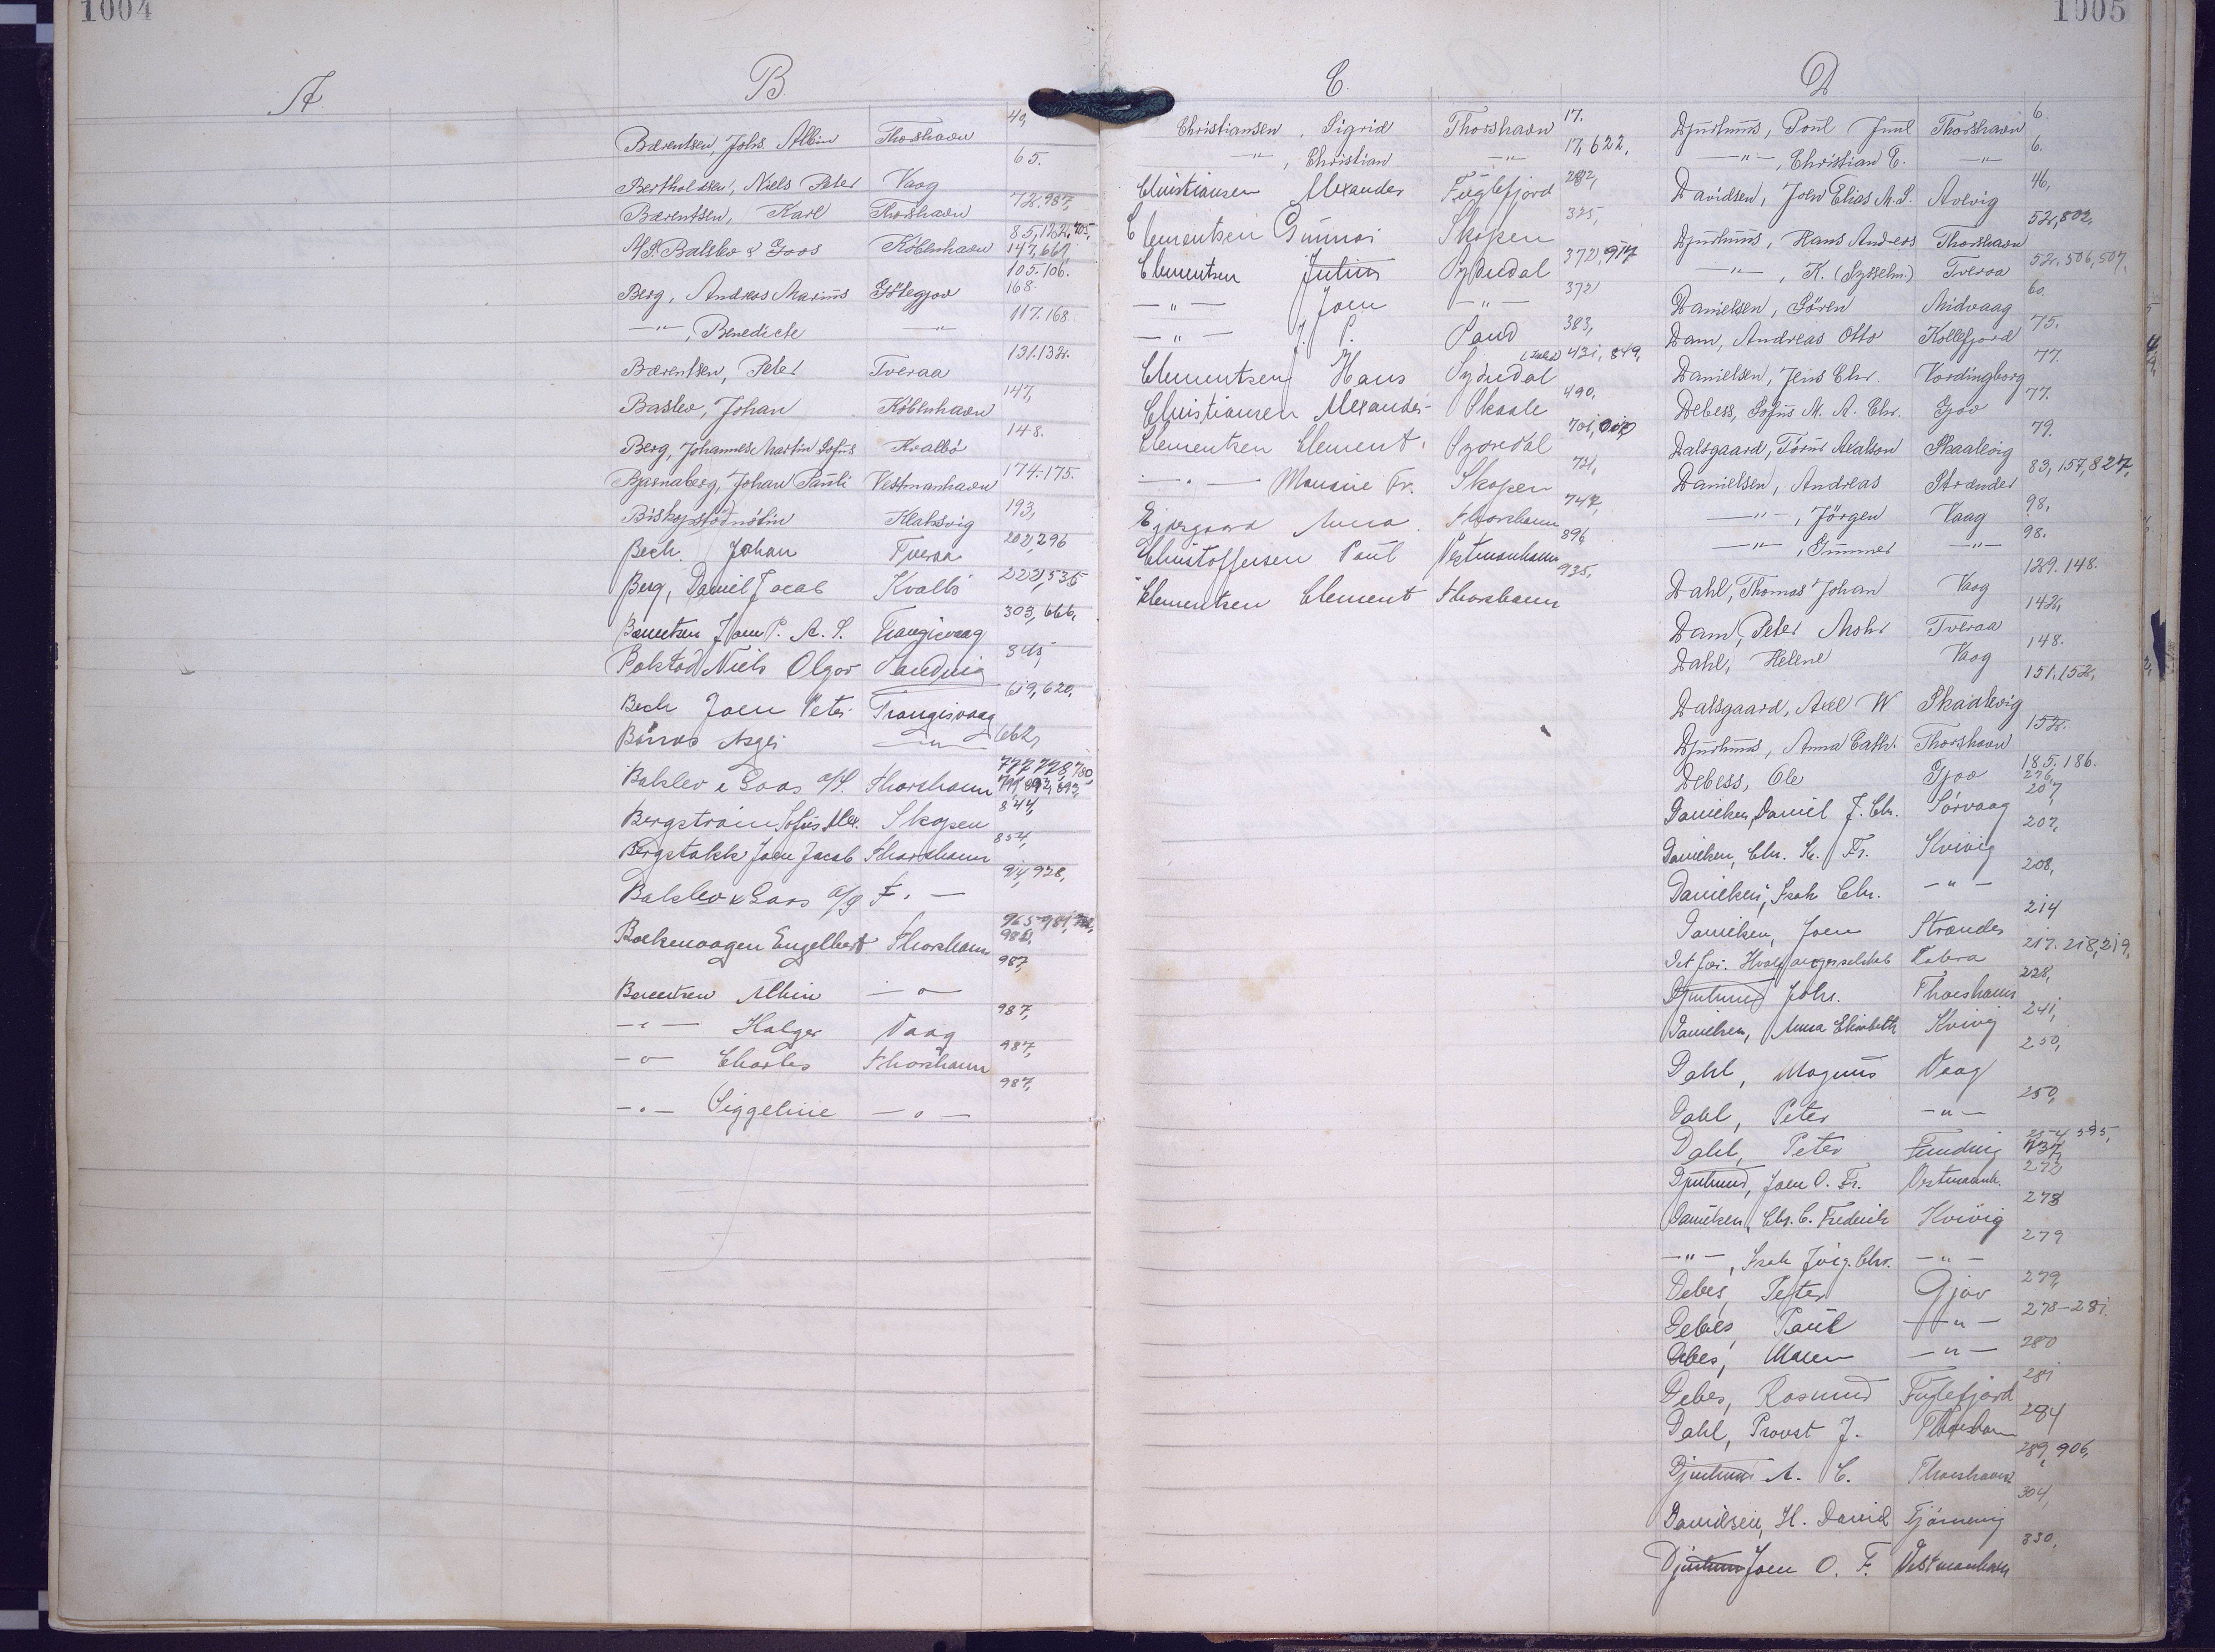 1004
1005
A.
B.
Bærentsen, Johs. Albin Thorshavn 40,
Bertholdsen, Niels Peter Vaag 65.
Bærentsen, Karl Thorshavn 72.987,
Balslev & Goos Købbnhavn 85,122,705, 147,661,
Berg, Andreas Marius Götegjov 105.106. 168.
—"—, Benedicte —"— 117.168
Bærentsen, Peter Tveraa 131.132.
Baslev, Johan Købbnhavn 147,
Berg, Johannes Martin Sofus Kvalbö 148.
Bjarnaberg, Johan Pauli Vestmanhavn 174.175.
Biskopstödnötin Klaksvig 193,
Bech, Johan Tveraa 202,296
Berg, Daniel Jacob Kvalbö 222,535
Bærentsen Joen P. A. S. Trangisvaag 303,666,
Bakstad Niels Olgar Sandvig 345,
Bech Joen Peter Trangisvaag 619,620,
Asger —"— 662,
Balslev & Goos a/s. Thorshavn 777 778,780,
Sofus Alex. Skopen 844,
Bergstakk Joen Jacob Thorshavn 854,
Balslev & Goos a/s T. — 928,
Engelbert Thorshavn 965 981,
Bærentsen Albin — " — 987,
—"— Holger Vaag 987,
—"— Charles Thorshavn 987,
—"— Siggeline — " — 987,
C.
Christiansen, Sigrid Thorshavn 17.
—"—, Christian —"— 17,622,
Christiansen Alexander Fuglefjord 282,
Clementsen Gunnar Skopen 325,
Clementsen Julius Sydredal 372,917
—"— Joen —"— 372
—"— J. P. Sand 383,
Clementsen Hans Sydredal 431,849,
Christiansen Alexander Skaale 490.
Clementsen Clement. 701,
—"— Fr. Skopen
Anna. Thorshavn 747,
Christoffersen Paul Vestmanhavn 896
Clementsen Clement Thorshavn 935,
D
Djurhuus, Poul Juul Thorshavn 6.
—"—, Christian E. —"— 6.
Davidsen, Joen Elias M. S. Avevig 46,
Djurhuus, Hans Andreas Thorshavn 52,802,
—"—, K. (Sysselm.) Tveraa 52.506,507,
Danielsen, Sören Midvaag 60.
Dam, Andreas Otto Kollefjord 75.
Danielsen, Jens Chr. Vordingborg 77.
Debess, Sofus M. A. Chr. Gjov 77.
Dalsgaard, Axelson Skaalevig 79.
Danielsen, Andreas Strænder 83,157,827,
—"—, Jörgen Vaag 98,
—"—, Gunner —"— 98.
Dahl, Thomas Johan Vaag 129.148.
Dam, Peter Mohr Tveraa 142,
Dahl, Helene Vaag 148.
Dalsgaard, Axel W Skaalevig 151.152,
Djurhuus, Anna Cath. Thorshavn 152.
Debess, Ole Gjov 185.186. 276,
Danielsen, Daniel J. Chr. Sörvaag 207,
Danielsen, Chr. Fr. Kvivig 207,
Danielsen, Isak Chr. —"— 208,
Danielsen, Joen Strænder 214
Det fær. Hvalfangerselskab 217.218,219,
Djurhuus Johs. Thorshavn 228,
Danielsen, Anna Elisabeth Kvivig 241,
Dahl, Magnus Vaag 250,
Dahl, Peter —"— 250,
Dahl, Peter Funding 254,595, 737,
Djurhuus, Joen O. Fr. Vestmanh. 272
Danielsen, Chr. C. Frederik Kvivig 278
—"—, Isak Jörg. Chr. —"— 279
Debes, Peter Gjov 279,
Debes, Paul —"— 278-281.
Debes, Maren —"— 280
Debes, Rasmus Fuglefjord 281
Dahl, Provst J. Thorshavn 284
Djurhuus A. C. Thorshavn 289,906,
Danielsen, H. David Tjörnevig 304,
Djurhuus Joen O. F. Vestmanhavn 330,